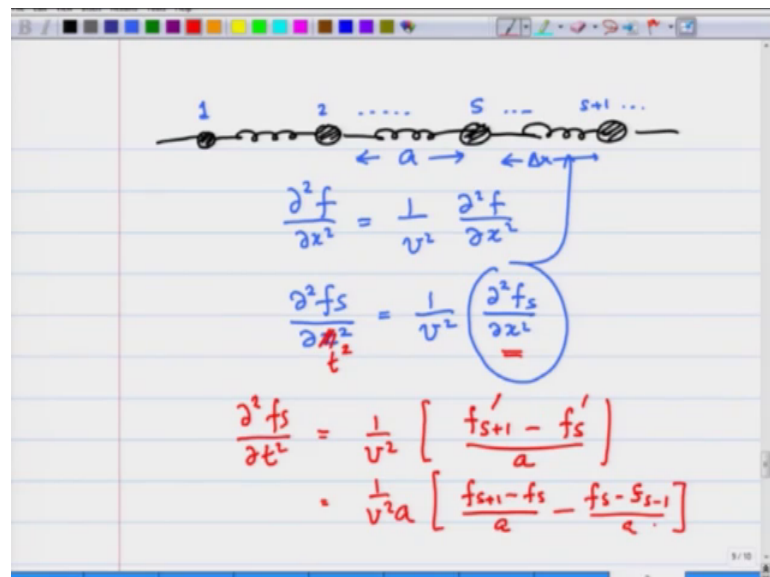 1 2 ..... S ... S+1 ...
← a → ← Δx →
∂²f/∂x² = 1/v² ∂²f/∂x²
∂²fs/∂x² t² = 1/v² ∂²fs/∂x²
∂²fs/∂t² = 1/v² [ (f's+1 - f's)/a ]
= 1/v²a [ (fs+1 - fs)/a - (fs - fs-1)/a ]
9 / 10